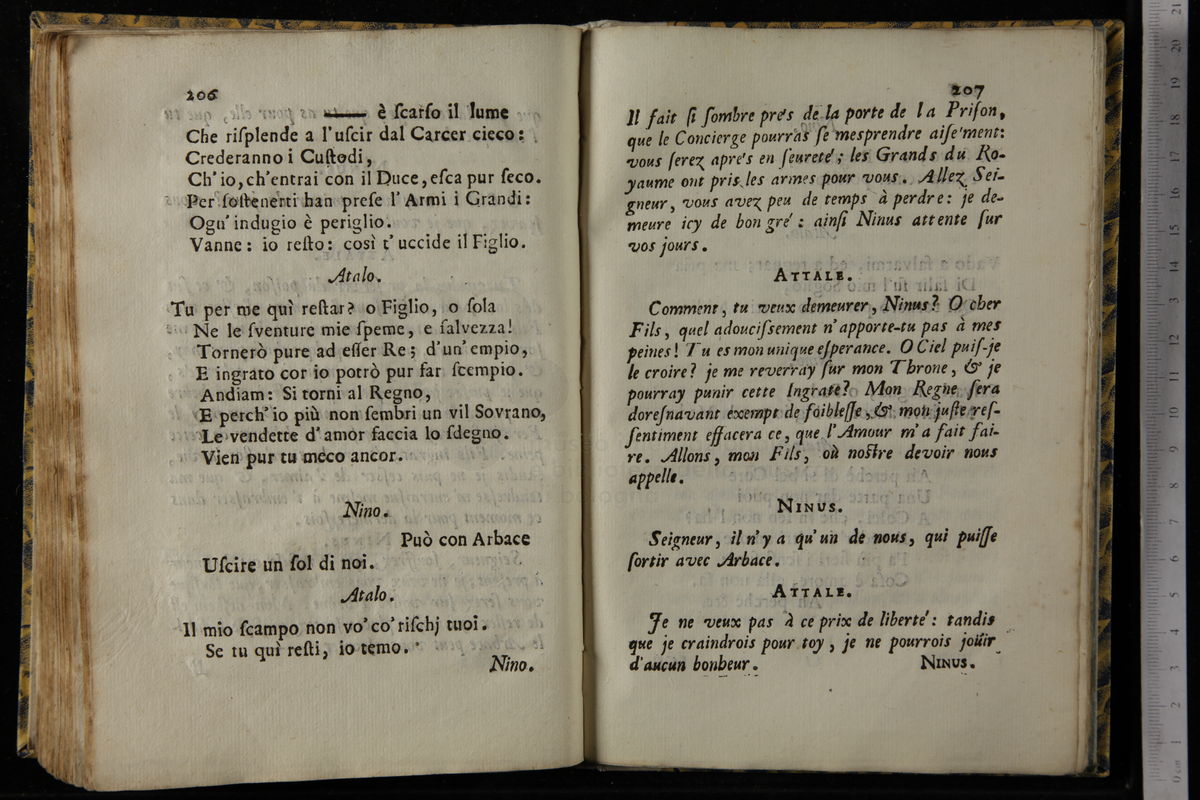 206
è ſcarſo il lume
Che riſplende a l'uſcir dal Carcer cieco:
Crederanno i Cuſtodi,
Ch' io, ch'entrai con il Duce, eſca pur ſeco.
Per ſoſtenerti han preſe l' Armi i Grandi:
Ogn' indugio è periglio.
Vanne: io reſto: così t' uccide il Figlio.
Atalo.
Tu per me quì reſtar? o Figlio, o ſola
Ne le ſventure mie ſpeme, e ſalvezza!
Tornerò pure ad eſſer Re; d'un' empio,
E ingrato cor io potrò pur far ſcempio.
Andiam: Si torni al Regno,
E perch' io più non ſembri un vil Sovrano,
Le vendette d' amor faccia lo ſdegno.
Vien pur tu meco ancor.
Nino.
Può con Arbace
Uſcire un ſol di noi.
Atalo.
Il mio ſcampo non vo' co' riſchj tuoi.
Se tu quì reſti, io temo.
Nino.
207
Il fait ſi ſombre pre's de la porte de la Priſon,
que le Concierge pourras ſe mesprendre aiſe'ment:
vous ſerez apre's en ſeurete'; les Grands du Ro-
yaume ont pris les armes pour vous. Allez Sei-
gneur, vous avez peu de temps à perdre: je de-
meure icy de bon gre': ainſi Ninus attente ſur
vos jours.
ATTALE.
Comment, tu veux demeurer, Ninus? O cher
Fils, quel adouciſsement n' apporte-tu pas à mes
peines! Tu es mon unique eſperance. O Ciel puiſ-je
le croire? je me reverray ſur mon Throne, & je
pourray punir cette Ingrate? Mon Regne ſera
doreſnavant éxempt de foibleſſe, & mon juſte reſ-
ſentiment effacera ce, que l' Amour m' a fait fai-
re. Allons, mon Fils, où noſtre devoir nous
appelle.
NINUS.
Seigneur, il n' y a qu' un de nous, qui puiſſe
ſortir avec Arbace.
ATTALE.
Je ne veux pas à ce prix de liberte': tandis
que je craindrois pour toy, je ne pourrois joüir
d'aucun bonheur.
NINUS.